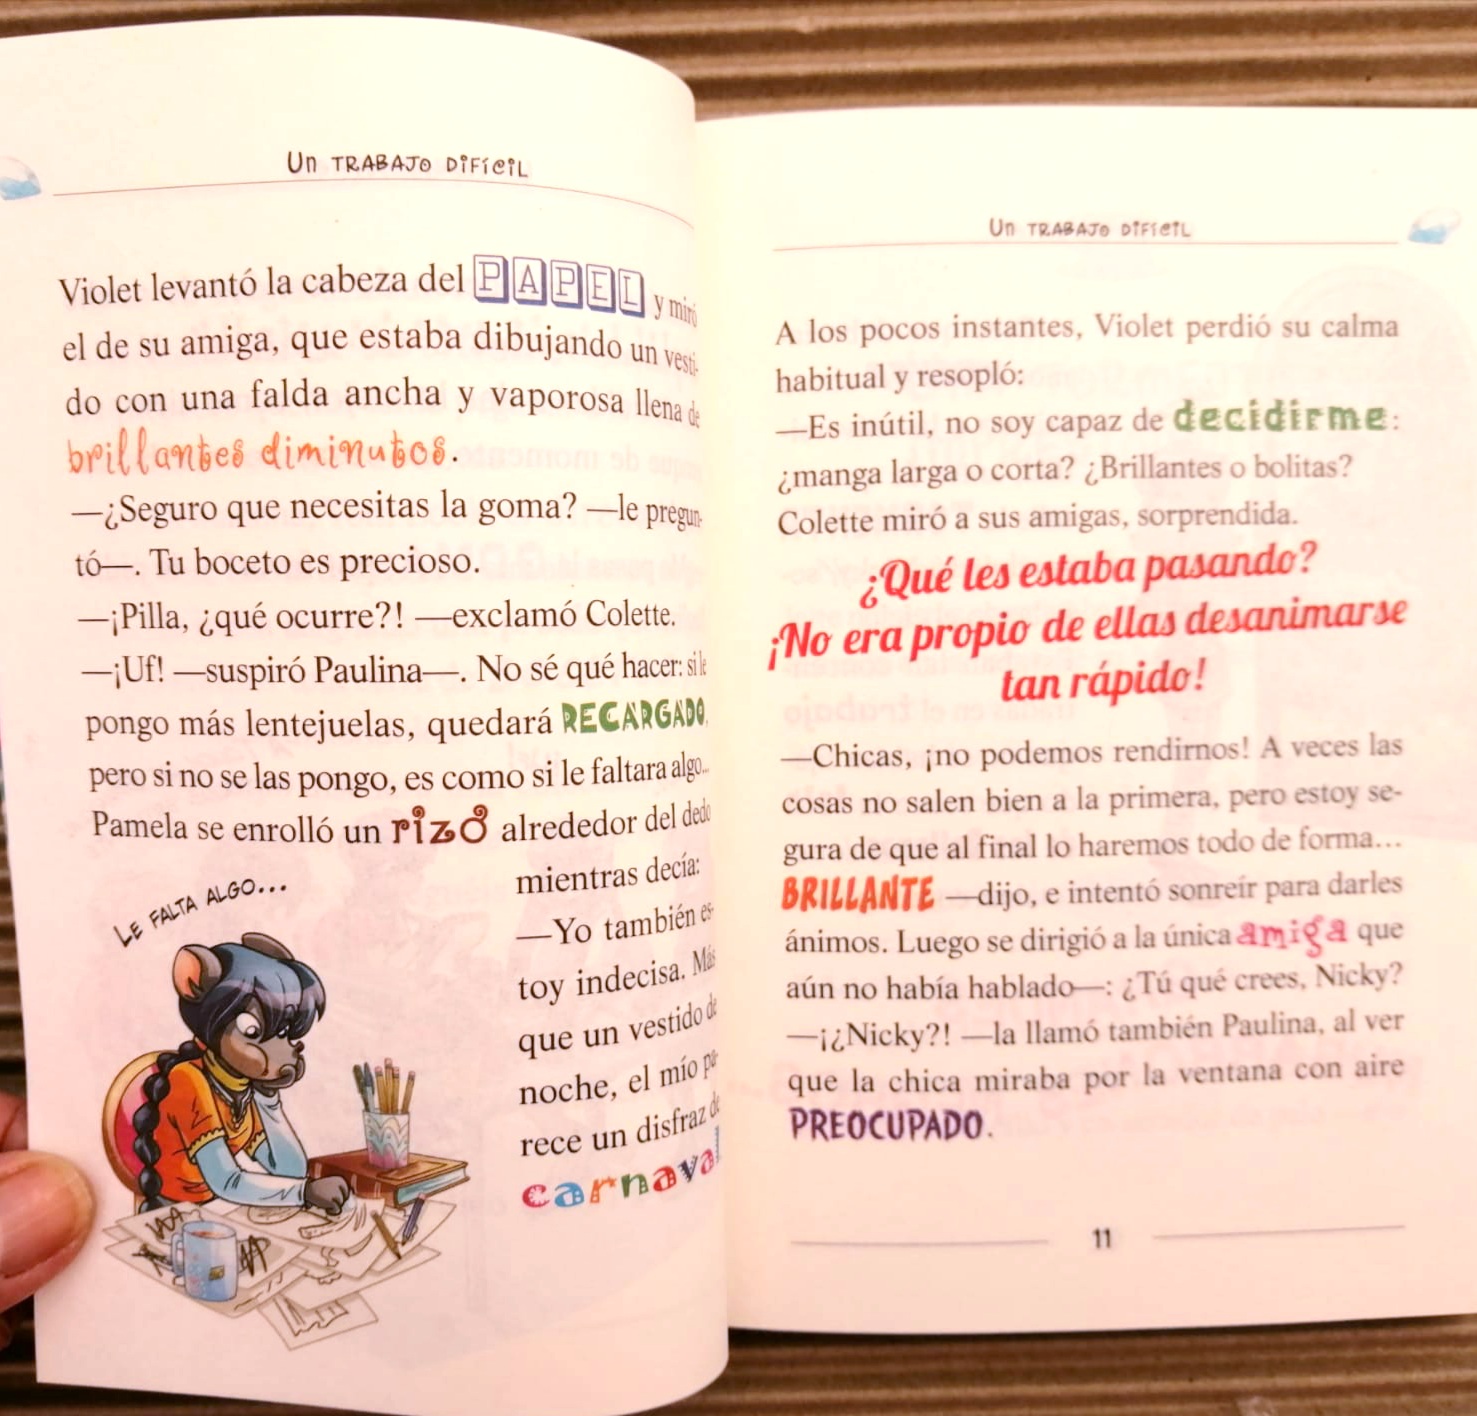 Un trabajo difícil
Violet levantó la cabeza del PAPEL y miró
el de su amiga, que estaba dibujando un vesti-
do con una falda ancha y vaporosa llena de
brillantes diminutos.
—¿Seguro que necesitas la goma? —le pregun-
tó—. Tu boceto es precioso.
—¡Pilla, ¿qué ocurre?! —exclamó Colette.
—¡Uf! —suspiró Paulina—. No sé qué hacer: si le
pongo más lentejuelas, quedará RECARGADO,
pero si no se las pongo, es como si le faltara algo...
Pamela se enrolló un rizo alrededor del dedo
mientras decía:
—Yo también es-
toy indecisa. Más
que un vestido de
noche, el mío pa-
rece un disfraz de
carnaval
Le falta algo...
Un trabajo difícil
A los pocos instantes, Violet perdió su calma
habitual y resopló:
—Es inútil, no soy capaz de decidirme:
¿manga larga o corta? ¿Brillantes o bolitas?
Colette miró a sus amigas, sorprendida.
¿Qué les estaba pasando?
¡No era propio de ellas desanimarse
tan rápido!
—Chicas, ¡no podemos rendirnos! A veces las
cosas no salen bien a la primera, pero estoy se-
gura de que al final lo haremos todo de forma...
BRILLANTE —dijo, e intentó sonreír para darles
ánimos. Luego se dirigió a la única amiga que
aún no había hablado—: ¿Tú qué crees, Nicky?
—¡¿Nicky?! —la llamó también Paulina, al ver
que la chica miraba por la ventana con aire
PREOCUPADO.
11